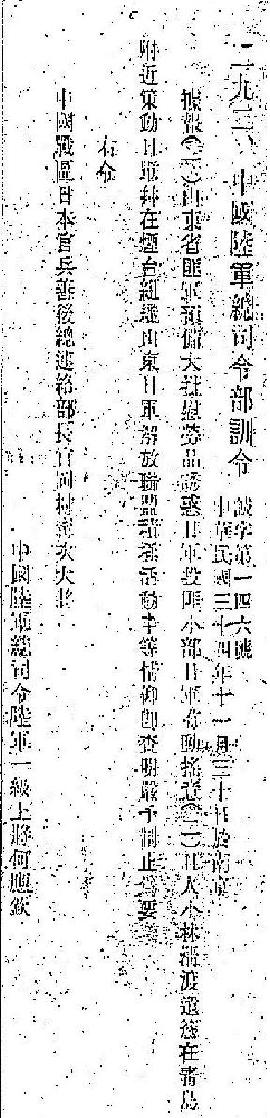 二九三、中國陸軍總司令部訓令
誠字第一四六號
中華民國三十四年十一月三十日於南京
據報(一)山東省匪軍預備大批慰勞品誘惑日軍投匪小部日軍有動搖意(二)日人小林清渡邊等在青島
附近策動日皇林在煙台組織山東日軍解放聯盟積極活動中等情仰即查明嚴予制止為要
右令
中國戰區日本官兵善後總連絡部長官岡村寧次大將
中國陸軍總司令陸軍一級上將何應欽